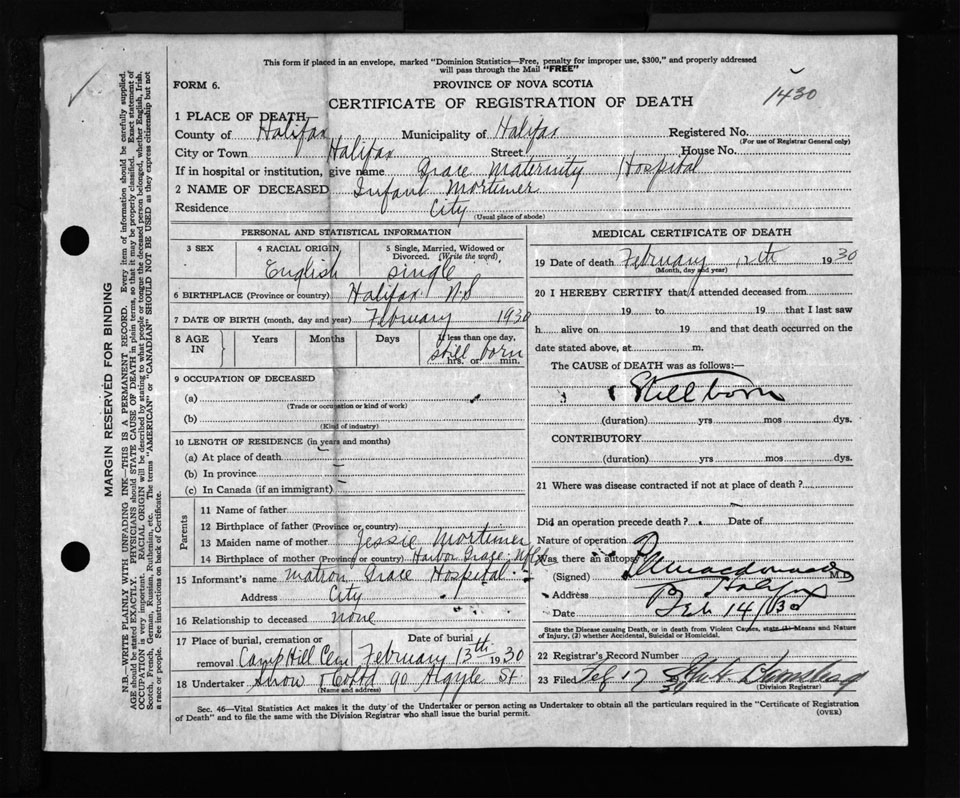 This form if placed in an envelope, marked "Dominion Statistics—Free, penalty for improper use, $300," and properly addressed
will pass through the Mail "FREE"
FORM 6.
PROVINCE OF NOVA SCOTIA
1430
CERTIFICATE OF REGISTRATION OF DEATH
1 PLACE OF DEATH
County of Halifax Municipality of Halifax Registered No.
(For use of Registrar General only)
City or Town Halifax Street House No.
If in hospital or institution, give name Grace Maternity Hospital
2 NAME OF DECEASED Infant Mortimer
Residence City
(Usual place of abode)
PERSONAL AND STATISTICAL INFORMATION
3 SEX
4 RACIAL ORIGIN
English
5 Single, Married, Widowed or
Divorced. (Write the word)
single
6 BIRTHPLACE (Province or country) Halifax N.S
7 DATE OF BIRTH (month, day and year) February 1930
8 AGE
IN
Years Months Days If less than one day,
still born
hrs. or min.
9 OCCUPATION OF DECEASED
(a)
(Trade or occupation or kind of work)
(b)
(Kind of industry)
10 LENGTH OF RESIDENCE (in years and months)
(a) At place of death
(b) In province
(c) In Canada (if an immigrant)
Parents
11 Name of father
12 Birthplace of father (Province or country)
13 Maiden name of mother Jessie Mortimer
14 Birthplace of mother (Province or country) Harbor Grace, Nfld
15 Informant's name Matron Grace Hospital
Address City
16 Relationship to deceased none
17 Place of burial, cremation or Date of burial
removal Camp Hill Cem February 13th 1930
18 Undertaker Snow & Co Ltd 90 Argyle St.
(Name and address)
MEDICAL CERTIFICATE OF DEATH
19 Date of death February th 1930
(Month, day and year)
20 I HEREBY CERTIFY that I attended deceased from
19 to 19 that I last saw
h alive on 19 and that death occurred on the
date stated above, at m.
The CAUSE of DEATH was as follows:—
Stillborn
(duration) yrs mos dys.
CONTRIBUTORY
(duration) yrs mos dys.
21 Where was disease contracted if not at place of death?
Did an operation precede death? Date of
Nature of operation
Was there an autopsy
(Signed) Macdonald M.D.
Address Halifax
Date Feb 14/30
State the Disease causing Death, or in death from Violent Causes, state (1) Means and Nature
of Injury, (2) whether Accidental, Suicidal or Homicidal.
22 Registrar's Record Number
23 Filed Feb 17 30
(Division Registrar)
Sec. 46—Vital Statistics Act makes it the duty of the Undertaker or person acting as Undertaker to obtain all the particulars required in the "Certificate of Registration
of Death" and to file the same with the Division Registrar who shall issue the burial permit.
(OVER)
MARGIN RESERVED FOR BINDING
N.B.—WRITE PLAINLY WITH UNFADING INK—THIS IS A PERMANENT RECORD. Every item of information should be carefully supplied.
AGE should be stated EXACTLY. PHYSICIANS should STATE CAUSE OF DEATH in plain terms, so that it may be properly classified. Exact statement of
OCCUPATION is very important. RACIAL ORIGIN will be described by stating to what people or tongue the deceased person belonged, whether English, Irish,
Scotch, French, German, Russian, Ruthenian, etc. The terms "AMERICAN" or "CANADIAN" SHOULD NOT BE USED as they express citizenship but not
a race or people. See instructions on back of Certificate.